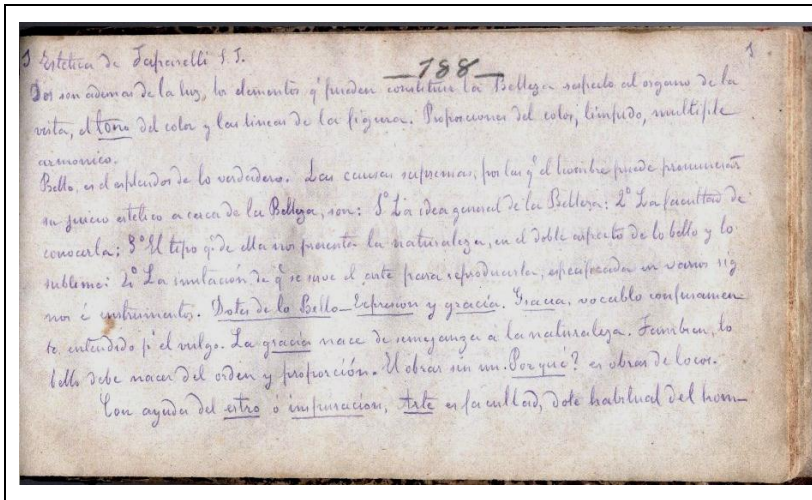 1 Estética de Taparelli S. J. 1
—188—
Dos son ademas de la luz, los elementos q.e pueden constituir la Belleza respecto al organo de la
vista, el tono del color y las lineas de la figura. Proporciones del color, limpido, multiple
armonico.
Bello, es el esplendor de lo verdadero. Las causas supremas, por las q.e el hombre puede pronunciar
su juicio estetico a cerca de la Belleza, son: 1º La idea general de la Belleza: 2º La facultad de
conocerla: 3º El tipo q.e de ella nos presenta la naturaleza, en el doble aspecto de lo bello y lo
sublime: 4º La imitación de q.e se sirve el arte para reproducirla, especificada en varios sig
nos é instrumentos. Dotes de lo Bello—Expresion y gracia. Gracia, vocablo confusamen
te entendido p.r el vulgo. La gracia nace de semejanza á la naturaleza. Tambien, lo
bello debe nacer del orden y proporción. El obrar sin un. Por qué? es obras de locos.
Con ayuda del estro ó inspiracion, Arte es facultad, dote habitual del hom—